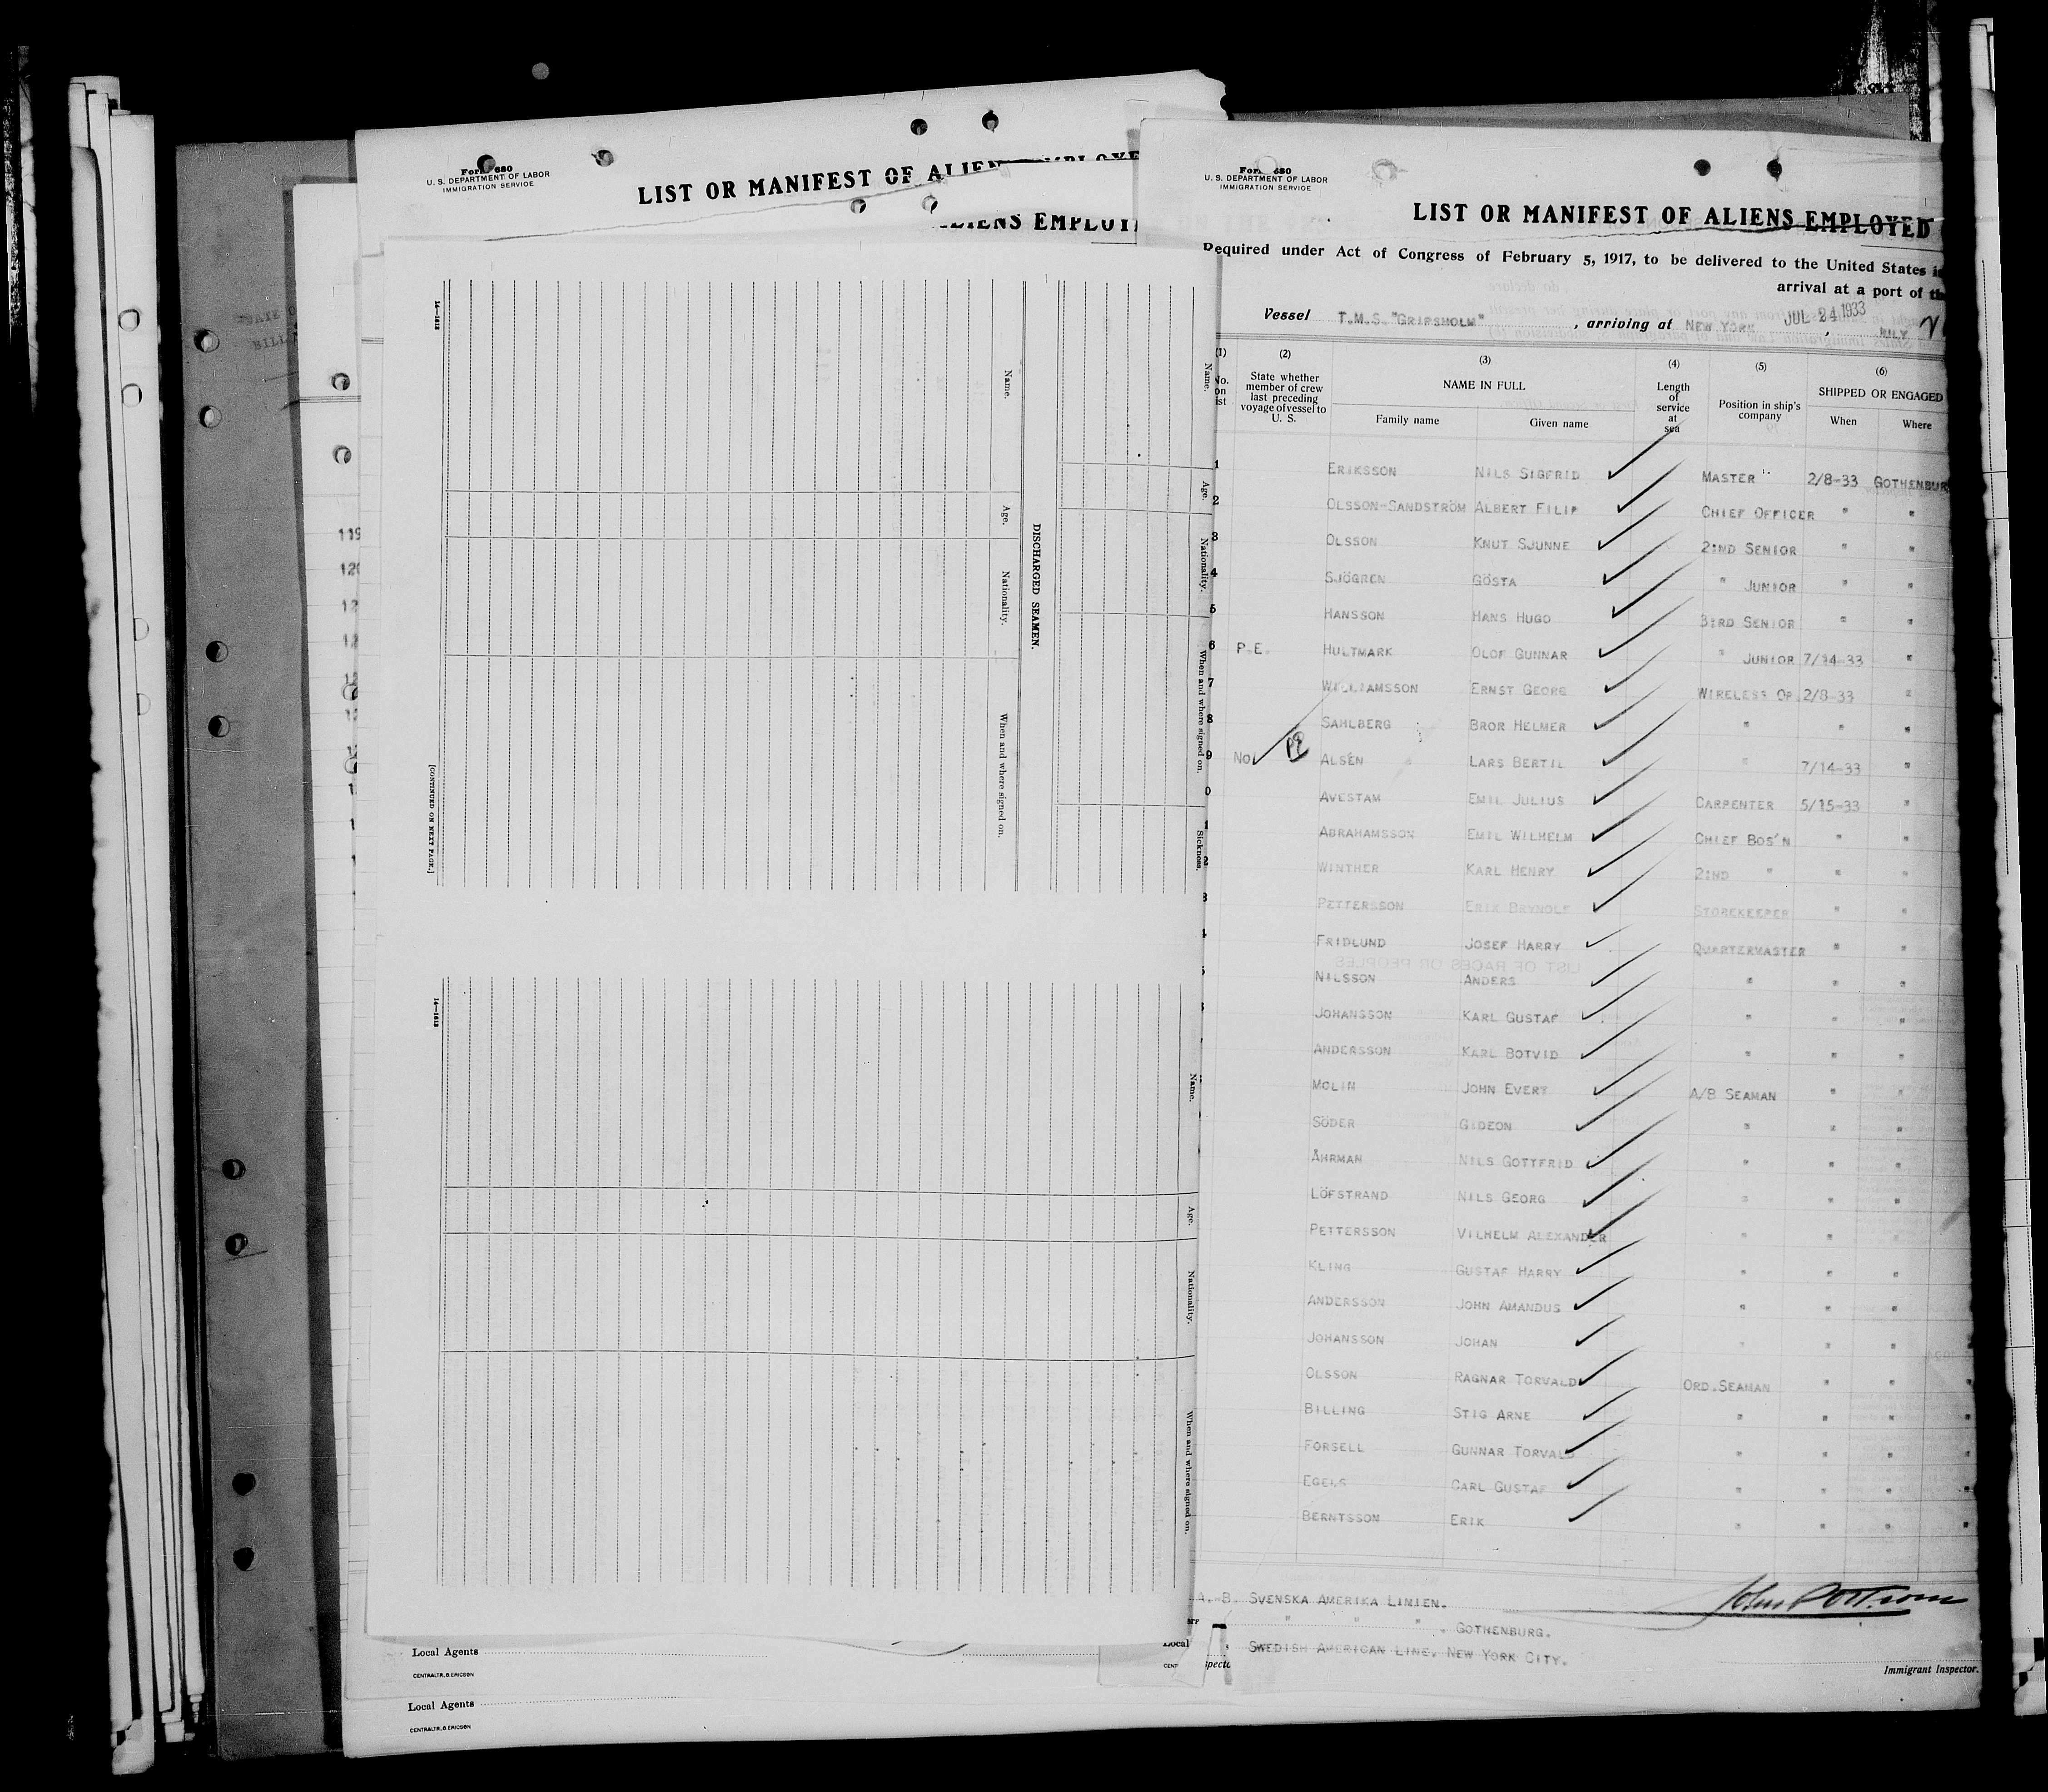 Form 680
U. S. DEPARTMENT OF LABOR
IMMIGRATION SERVICE
LIST OR MANIFEST OF ALIEN EMPLOYE
ALIENS EMPLOY
14—1613
Name.
Age.
Nationality.
When and where signed on.
Sickness.
DISCHARGED SEAMEN.
Name.
Age.
Nationality.
When and where signed on.
[CONTINUED ON NEXT PAGE.]
14—1613
Name.
Age.
Nationality.
When and where signed on.
119
120
Local Agents
CENTRALTR. G. ERICSON
Local Agents
CENTRALTR. G. ERICSON
Form 680
U. S. DEPARTMENT OF LABOR
IMMIGRATION SERVICE
LIST OR MANIFEST OF ALIENS EMPLOYED
Required under Act of Congress of February 5, 1917, to be delivered to the United States i
arrival at a port of th
Vessel T.M.S. "GRIPSHOLM", arriving at NEW YORK JUL 24 1933, JULY
(1) (2) (3) (4) (5) (6)
No. on list State whether member of crew last preceding voyage of vessel to U. S. NAME IN FULL Length of service at sea Position in ship's company SHIPPED OR ENGAGED
Family name Given name When Where
1 ERIKSSON NILS SIGFRID MASTER 2/8-33 GOTHENBUR
2 OLSSON-SANDSTRÖM ALBERT FILIP CHIEF OFFICER " "
3 OLSSON KNUT SJUNNE 2:ND SENIOR " "
4 SJÖGREN GÖSTA " JUNIOR " "
5 HANSSON HANS HUGO 3:RD SENIOR " "
6 P.E. HULTMARK OLOF GUNNAR " JUNIOR 7/14-33 "
7 WILLIAMSSON ERNST GEORG WIRELESS OP. 2/8-33 "
8 SAHLBERG BROR HELMER " " "
9 NO PE ALSÉN LARS BERTIL " 7/14-33 "
0 AVESTAM EMIL JULIUS CARPENTER 5/15-33 "
1 ABRAHAMSSON EMIL WILHELM CHIEF BOS'N " "
2 WINTHER KARL HENRY 2:ND " " "
3 PETTERSSON ERIK BRYNOLF STOREKEEPER " "
4 FRIDLUND JOSEF HARRY QUARTERMASTER " "
LIST OF RACES OR PEOPLES
NILSSON ANDERS " " "
JOHANSSON KARL GUSTAF " " "
ANDERSSON KARL BOTVID " " "
MOLIN JOHN EVERT A/B SEAMAN " "
SÖDER GIDEON " " "
ÅHRMAN NILS GOTTFRID " " "
LÖFSTRAND NILS GEORG " " "
PETTERSSON VILHELM ALEXANDER " " "
KLING GUSTAF HARRY " " "
ANDERSSON JOHN AMANDUS " " "
JOHANSSON JOHAN " " "
OLSSON RAGNAR TORVALD ORD.SEAMAN " "
BILLING STIG ARNE " " " "
FORSELL GUNNAR TORVALD " " " "
EGELS CARL GUSTAF " " " "
BERNTSSON ERIK " " " "
A.-B. SVENSKA AMERIKA LINIEN.
" " " . GOTHENBURG.
Local SWEDISH AMERICAN LINE, NEW YORK CITY.
Immigrant Inspector.